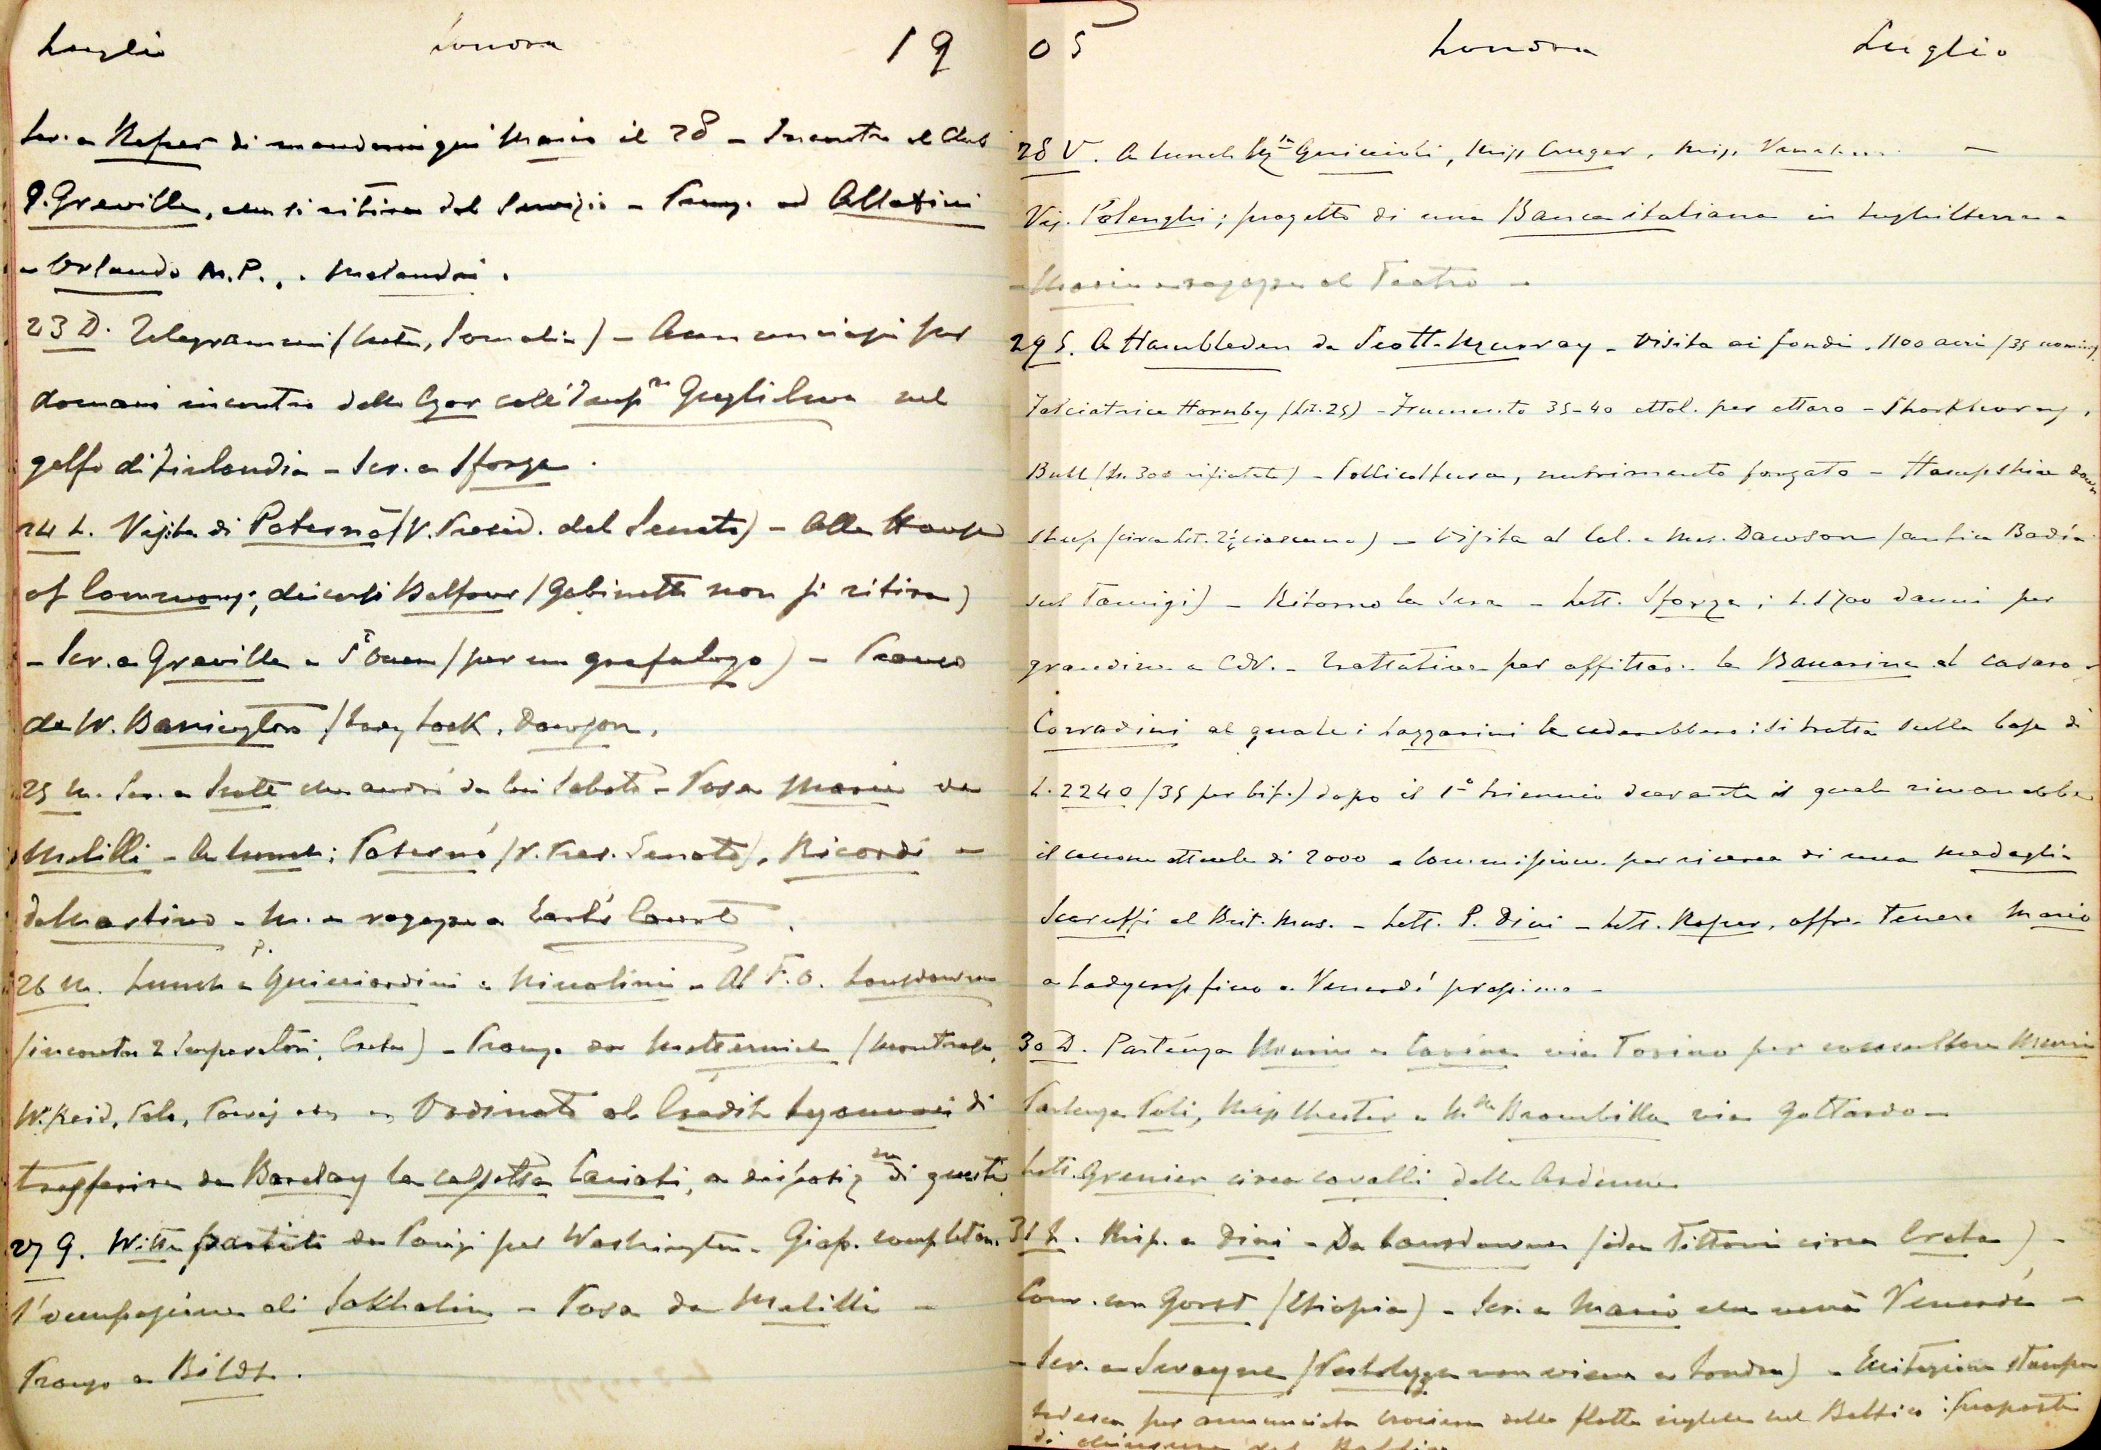 Luglio Londra 19
Scr. a Roper di mandarmi qui Mario il 28 – Incontro al Club
Greville, che si ritira dal Servizio – Pranzo ad Allatini
– Orlando M.P., Melandri.
23 D. Telegrammi (Somalia) – Annunciasi per
domani incontro dello Czar coll'Imp.re Guglielmo nel
golfo di Finlandia – Scr. a Sforza.
24 L. Visita di Paternò (V. Presid. del Senato) – Alla House
of Commons; discorso Balfour (Gabinetto non si ritira)
– Scr. a Greville a (per un grafologo) – Pranzo
da W. Barrington (Lady Lock, Dawson.
25 M. Scr. a Scott che andrò da lui Sabato – Posa Maria da
Melilli – A lunch: Paternò (V. Pres. Senato), Ricordi –
deMartino – M. e ragazze a Earl's Court.
26 M. Lunch a P. Guicciardini e Niccolini – Al F.O. Lansdowne
(incontro 2 Imperatori, Creta) – Pranzo da Metternich (
W. Reid, – Ordinato al Crédit Lyonnais di
trasferire da Barclay la cassetta Cariati, a disposiz.ne di questa
27 G. Witte partito da Parigi per Washington – Giap. completano
l'occupazione di Sakhalin – Posa da Melilli –
Pranzo a Bildt.
05 Londra Luglio
28 V. A lunch Guiccioli, Miss Cruger, Miss
Vis. Polenghi; progetto di una Banca italiana in Inghilterra –
– Maria e ragazze al Teatro –
29 S. A Hambleden da Scott-Murray – Visita ai fondi. 1100 acri (35 uomini)
Falciatrice Hornby (Lst. 25) – Frumento 35-40 ettol. per ettaro – Shorthorns,
Bull (Lt. 300 rifiutate) – Pollicoltura, nutrimento forzato – Hampshire down
sheep (circa Lst. 2½ ciascuno) – Visita al Col. e Mrs. Dawson (antica Badia
sul Tamigi) – Ritorno la sera – Lett. Sforza; L. 1700 danni per
grandine a CdV. – Trattative per affittare la Bavarina al casaro
Corradini al quale i Lazzarini la cederebbero: si tratta sulla base di
L. 2240 (35 per bif.) dopo il 1° triennio durante il quale rimarrebbe
il canone attuale di 2000 – Commissione per ricerca di una medaglia
Scaruffi al Brit. Mus. – Lett. P. Dini – Lett. Roper, offre tenere Mario
a Ladycross fino a Venerdì prossimo –
30 D. Partenza Maria e Carina via Torino per consultare
Partenza Poli, Miss Chester e M.lle Brambilla via Gottardo –
Lett. Grenier circa cavalli delle Ardenne
31 L. Risp. a Dini – Da Lansdowne (idea Tittoni circa Creta) –
Conv. con Gorst (Etiopia) – Scr. a Mario che verrà Venerdì –
– Scr. a Swayne (Pestalozza non viene a Londra) – Eccitazione stampa
tedesca per annunciata crociera della flotta inglese nel Baltico: proposta
di chiusura del Baltico